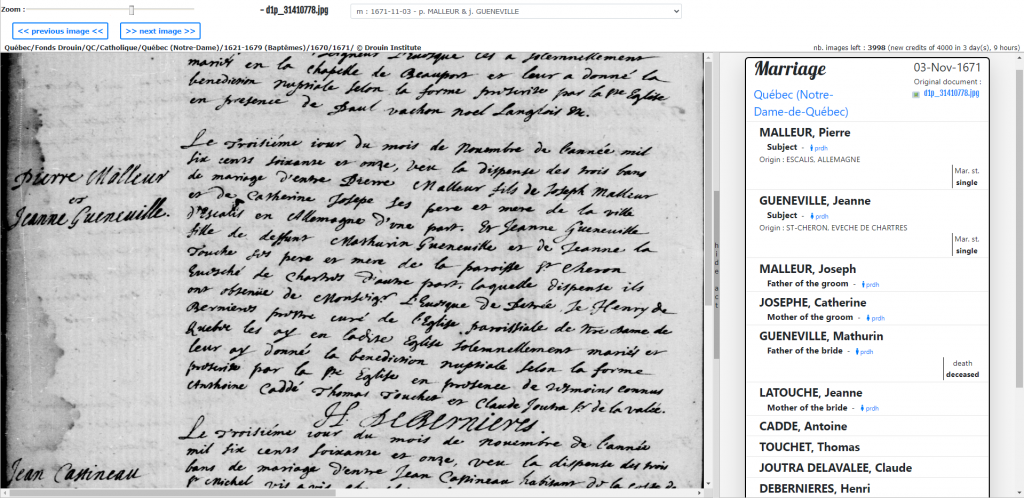 Zoom :
- d1p_31410778.jpg
m : 1671-11-03 - p. MALLEUR & j. GUENEVILLE
<< previous image <<
>> next image >>
Québec/Fonds Drouin/QC/Catholique/Québec (Notre-Dame)/1621-1679 (Baptêmes)/1670/1671/ © Drouin Institute
nb. images left : 3998 (new credits of 4000 in 3 day(s), 9 hours)
mariés en la chapelle de Beauport et leur a donné la
benediction nuptiale selon la forme prescrite par la Ste Eglise
en presence de Paul vachon noel Langlois &c.
Pierre Molleur
et
Jeanne Gueneuille.
Le troisiéme iour du mois de Nouembre de l'année mil
six cents soixante et onze, veu la dispense des trois bans
de mariage d'entre Pierre Malleur fils de Joseph Malleur
et de Catherine Josepe ses pere et mere de la ville
d'Escalis en Allemagne d'une part. Et Jeanne Gueneuille
fille de deffunt Mathurin Gueneuille et de Jeanne la
Touche ses pere et mere de la paroisse St Cheron
Euesché de Chartres d'autre part; laquelle dispense ils
ont obtenüe de Monseigr L'Euesque de Petrée Je Henry de
Bernieres prestre curé de l'Eglise paroissiale de Nre dame de
Quebec les ay en ladite Eglise solemnellement mariés et
leur ay donné la benediction nuptiale selon la forme
prescrite par la Ste Eglise en presence de tesmoins connus
Anthoine Caddé Thomas Touchet et Claude Joutra Sr de la valée.
H. DeBernieres.
Jean Cassineau
Le troisiéme iour du mois de nouembre de l'année
mil six cents soixante et onze, veu la dispense des trois
bans de mariage d'entre Jean Cassineau habitant de la coste de
St Michel
hide act
Marriage
03-Nov-1671
Original document :
d1p_31410778.jpg
Québec (Notre-
Dame-de-Québec)
MALLEUR, Pierre
Subject - prdh
Origin : ESCALIS, ALLEMAGNE
Mar. st.
single
GUENEVILLE, Jeanne
Subject - prdh
Origin : ST-CHERON, EVECHE DE CHARTRES
Mar. st.
single
MALLEUR, Joseph
Father of the groom - prdh
JOSEPHE, Catherine
Mother of the groom - prdh
GUENEVILLE, Mathurin
Father of the bride - prdh
death
deceased
LATOUCHE, Jeanne
Mother of the bride - prdh
CADDE, Antoine
TOUCHET, Thomas
JOUTRA DELAVALEE, Claude
DEBERNIERES, Henri